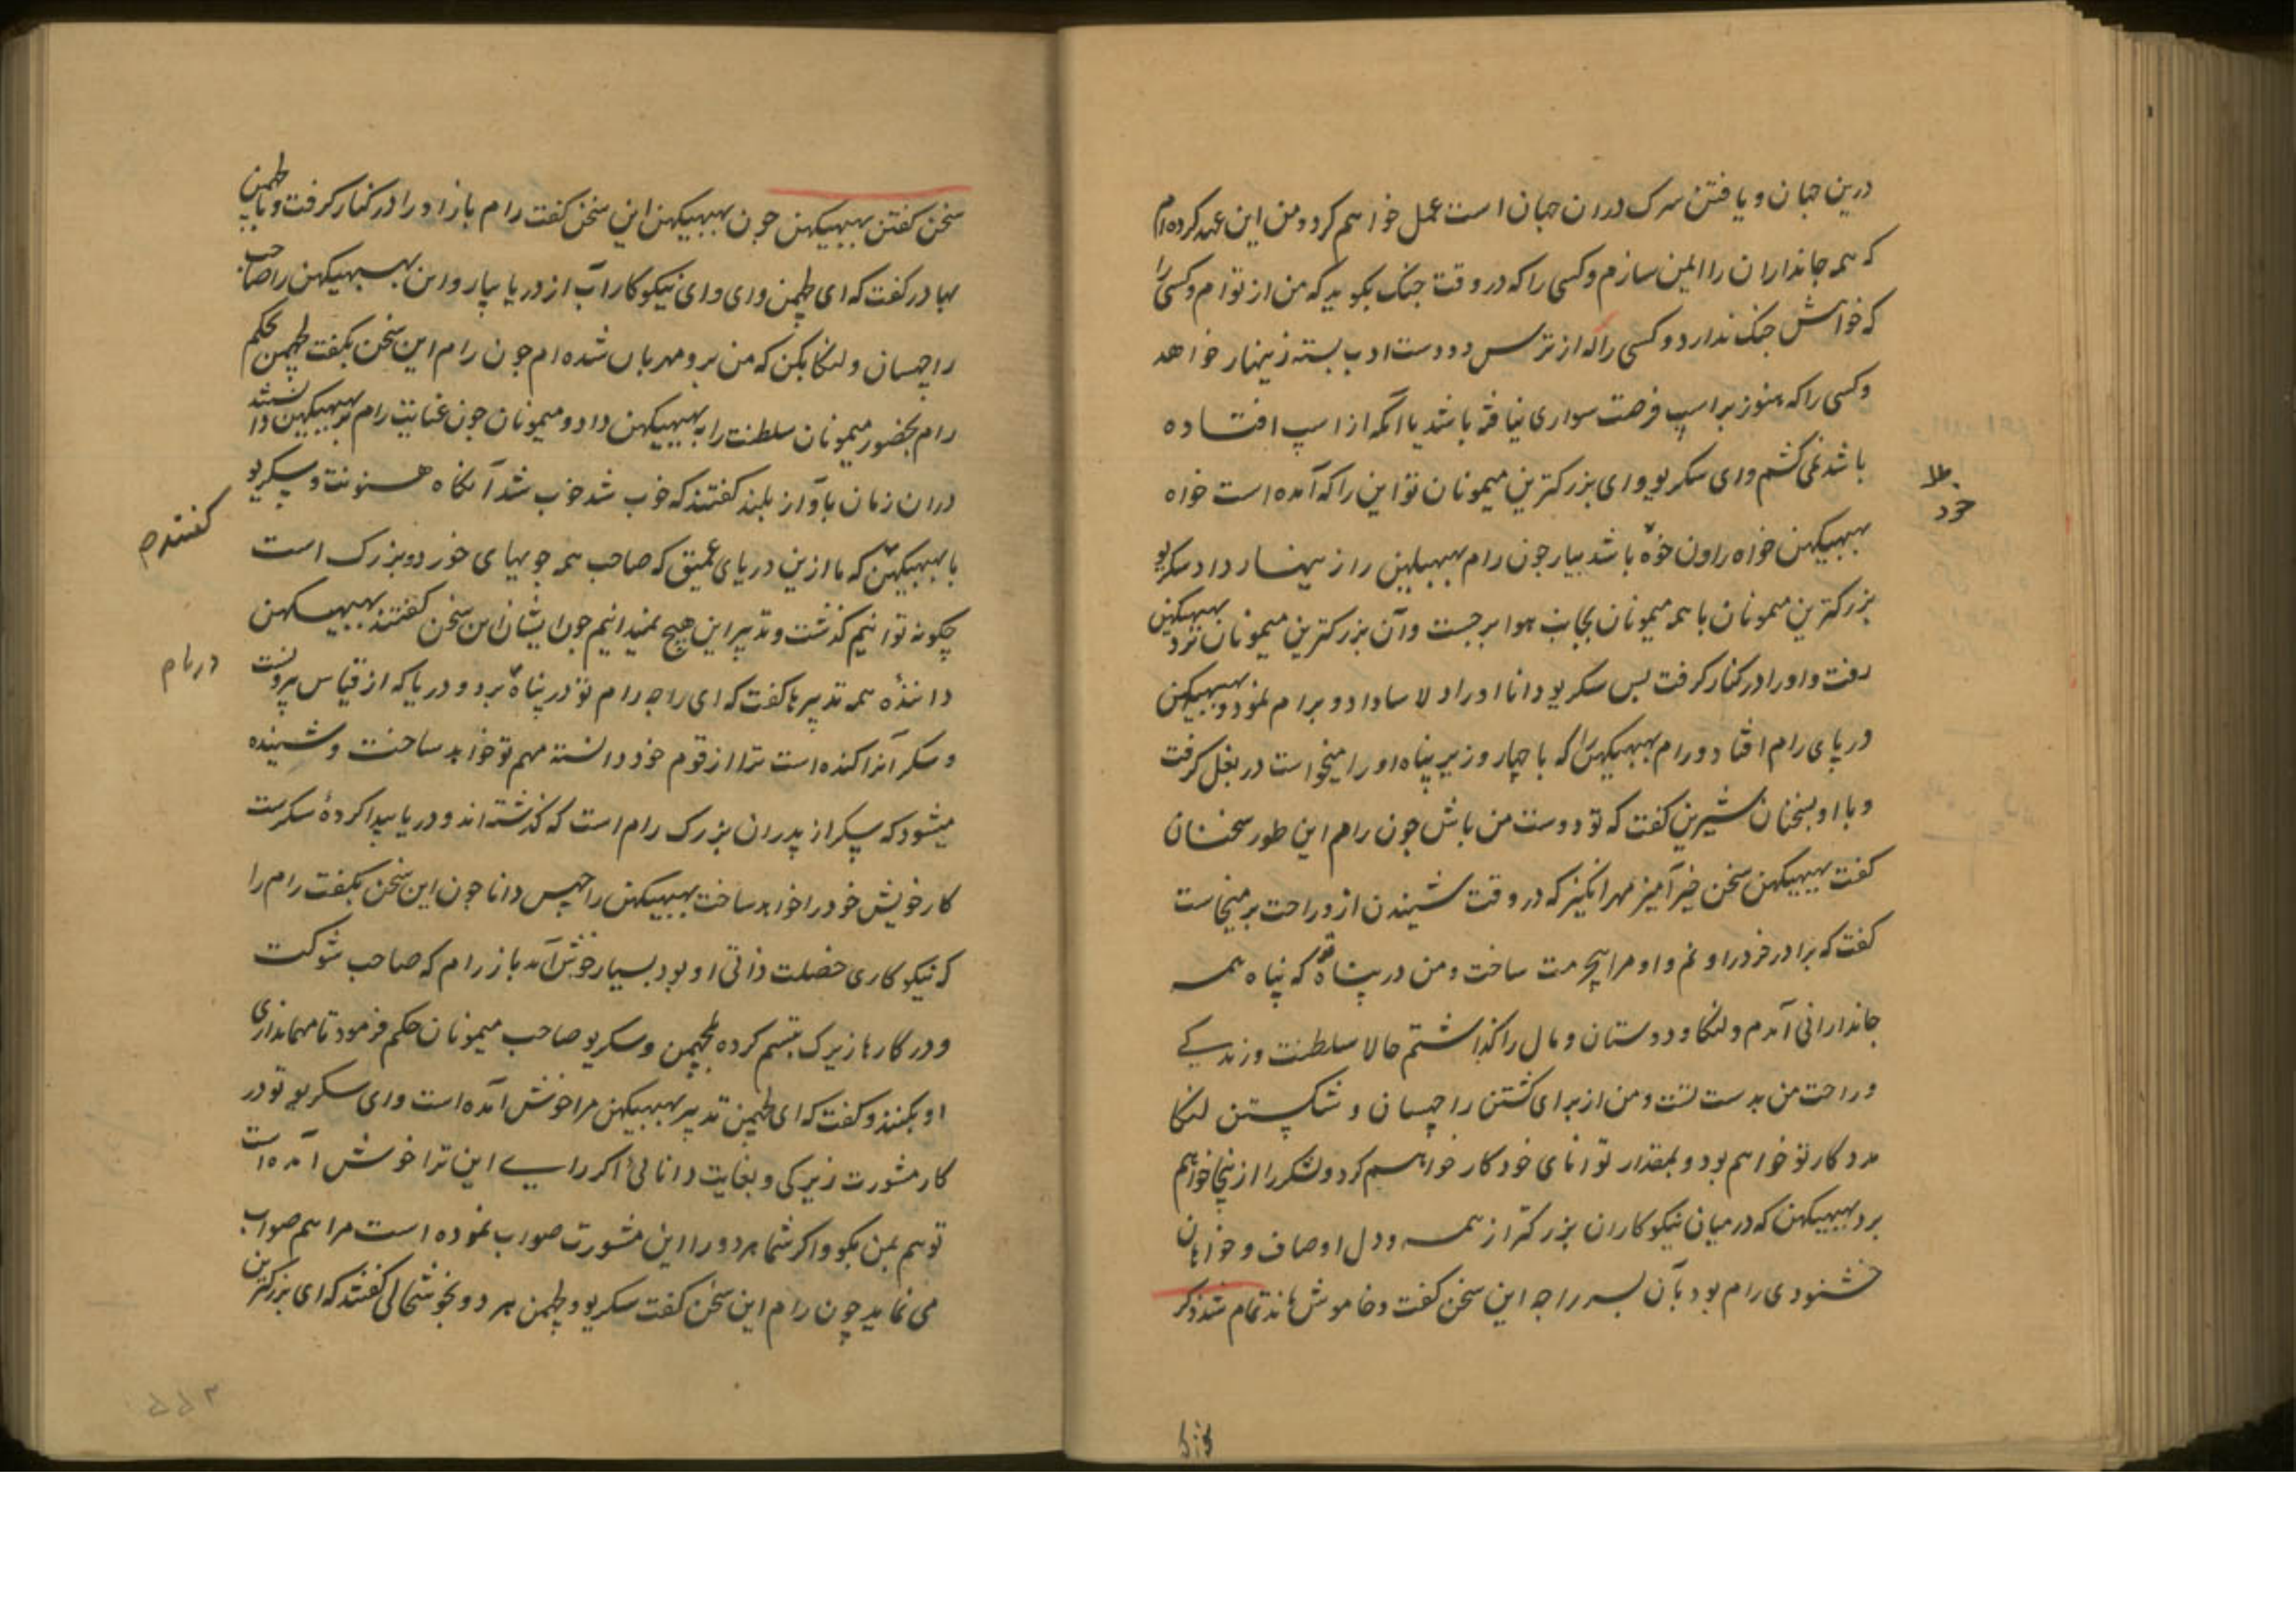 درین جهان و یافتن سرک دران جهان است عمل خواهم کرد و من این عهد کرده‌ام
که همه جانداران را ایمن سازم و کسی را که در وقت جنک بکوید که من از توام و کسی را
که خواهش جنک ندارد و کسی را که از ترس دو دست ادب بسته زینهار خواهد
و کسی را که هنوز بر اسپ فرصت سواری نیافته باشد یا آنکه از اسپ افتاده
باشد نمی کشم و ای سکریو و ای بزرکترین میمونان تو این را که آمده است خواه
بهبیکهن خواه راون خود باشد بیار چون رام بهبیکهن را زینهار داد سکریو
بزرکترین میمونان با همه میمونان بجانب هوا برجست و آن بزرکترین میمونان نزد بهبیکهن
رفت و او را در کنار کرفت پس سکریو دانا او را دلاسا داد و برام نمود و بهبیکهن
در پای رام افتاد و رام بهبیکهن را که با چهار وزیر پناه او را میخواست در بغل کرفت
و با او بسخنان شیرین کفت که تو دوست من باش چون رام این طور سخنان
کفت بهبیکهن سخن خیرآمیز مهرانکیز که در وقت شنیدن ازو راحت برمیخاست
کفت که برادر خورد راونم و او مرا بیحرمت ساخت و من در پناه تو که پناه همه
جاندارانی آمدم و لنکا و دوستان و مال را کذاشتم حالا سلطنت و زندکی
و راحت من بدست تست و من از برای کشتن راچهسان و شکستن لنکا
مددکار تو خواهم بود و بمقدار توانای خود کار خواهم کرد و لشکر را ازینجا خواهم
برد بهبیکهن که درمیان نیکوکاران بزرکتر از همه و دل اوصاف و خواهان
خشنودی رام بود بآن پسر راجه این سخن کفت و خاموش ماند تمام شد ذکر
سخن کفتن بهبیکهن چون بهبیکهن این سخن کفت رام باز او را در کنار کرفت و با لچمن
بهادر کفت که ای لچمن و ای وای نیکوکار آب از دریا بیار و این بهبیکهن را صاحب
راچهسان و لنکا بکن که من برو مهربان شده‌ام چون رام این سخن بکفت لچمن بحکم
رام بحضور میمونان سلطنت را به بهبیکهن داد و میمونان چون عنایت رام بر بهبیکهن دانستند
دران زمان بآواز بلند کفتند که خوب شد خوب شد آنکاه هنونت و سکریو
با بهبیکهن که ما ازین دریای عمیق که صاحب همه جویهای خورد و بزرک است
کفتند
چکونه توانیم کذشت و تدبیر این هیچ نمیدانیم چون ایشان این سخن کفتند بهبیکهن
داننده همه تدبیرها کفت که ای راجه رام تو در پناه برو و دریا که از قیاس بیرونست
و سکر آنرا کنده است ترا از قوم خود دانسته مهم تو خواهد ساخت و شنیده
میشود که سکر از پدران بزرک رام است که کذشته‌اند و دریا پیدا کرده سکرست
کار خویش خود را خواهد ساخت بهبیکهن راچهس دانا چون این سخن بکفت رام را
که نیکوکاری خصلت ذاتی او بود بسیار خوش آمد باز رام که صاحب شوکت
و در کارها زیرک تبسم کرده بلچمن و سکریو صاحب میمونان حکم فرمود تا مهمانداری
او بکنند و کفت که ای لچمن تدبیر بهبیکهن مرا خوش آمده است و ای سکریو تو در
کار مشورت زیرکی و بغایت دانائی اکر رای این ترا خوش آمده است
تو هم بمن بکو و اکر شما هر دو را این مشورت صواب نموده است مرا هم صواب
می نماید چون رام این سخن کفت سکریو و لچمن هر دو بخوشحالی کفتند که ای بزرکترین